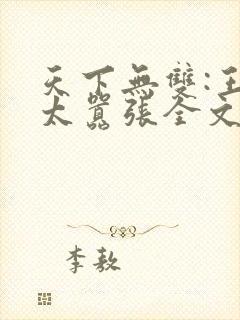 天下無雙:王
太囂張全文
李敖